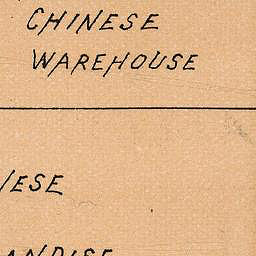 CHINESE
WAREHOUSE
NESE
ANDISE